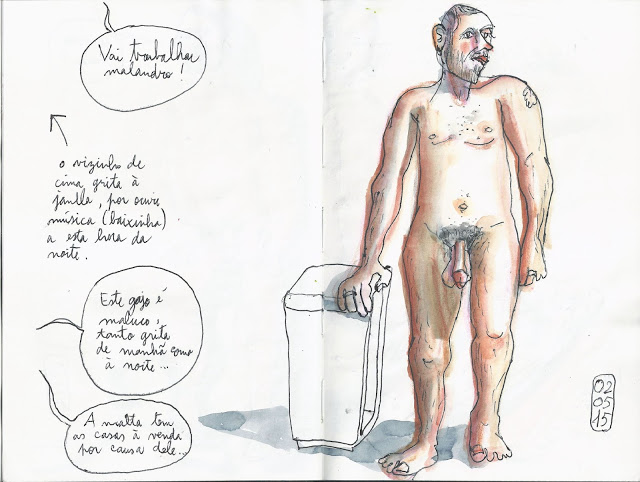 Vai trabalhar
malandro!
o vizinho de
cima grita à
janela, por ouvir
música (baixinha)
a esta hora da
noite.
Este gajo é
maluco,
tanto grita
de manhã como
à noite...
A malta tem
as casas à venda
por causa dele...
02
05
15